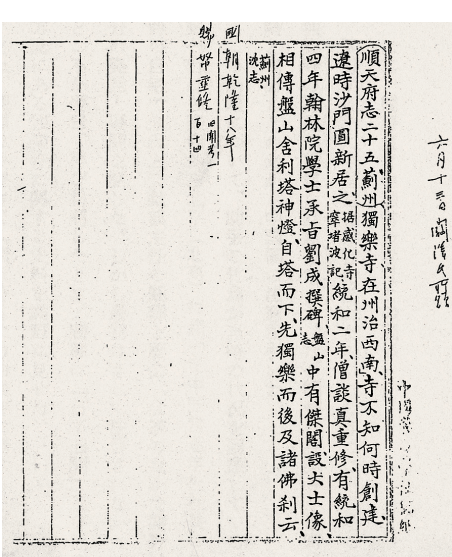 六月十三日
順天府志二十五薊州獨樂寺在州治西南寺不知何時創建
遼時沙門圓新居之據感化寺窣堵波記統和二年僧談真重修有統和
四年翰林院學士承旨劉成撰碑盤山志中有傑閣設大士像
相傳盤山舍利塔神燈自塔而下先獨樂而後及諸佛刹云
薊州沈志
國朝乾隆十八年